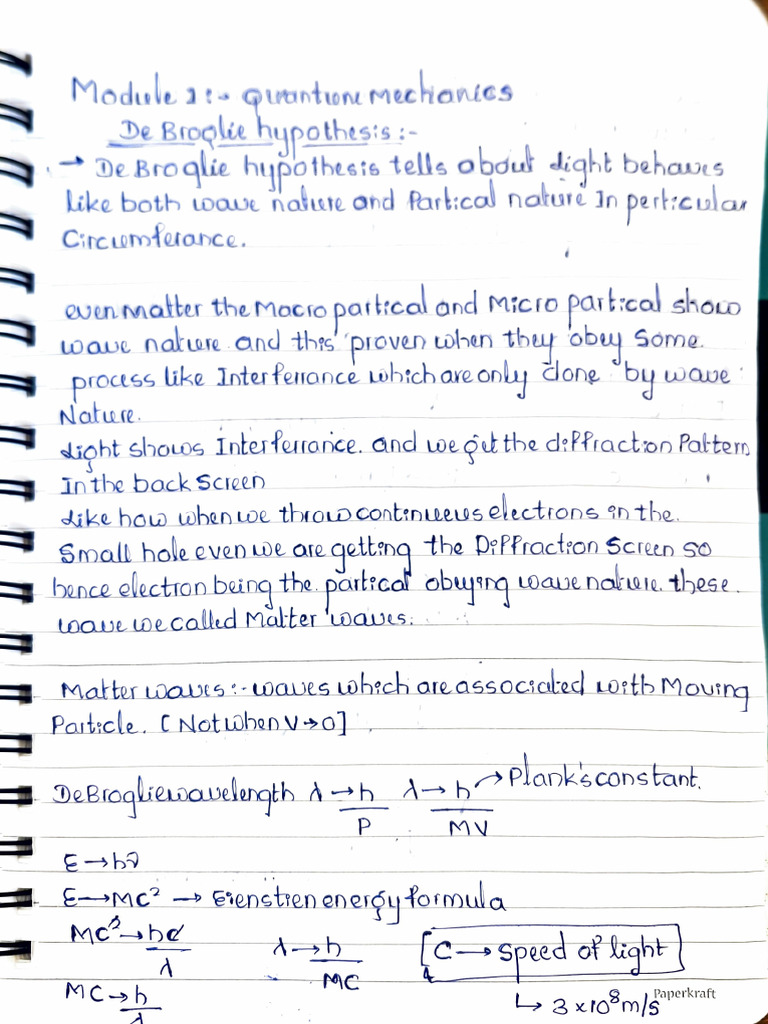 Module 2:- Quantum mechanics
De Broglie hypothesis:-
→ De Broglie hypothesis tells about light behaves
like both wave nature and Partical nature In perticular
Circumferance.
even matter the Macro partical and Micro partical show
wave nature and this proven when they obey Some
process like Interferrance which are only done by wave
Nature.
Light shows Interferrance. and we get the diffraction Pattern
In the back Screen
Like how when we throw continueus electrons in the
Small hole even we are getting the Diffraction Screen so
hence electron being the partical obuying wave nature. these
wave we called Matter waves.
Matter waves:- waves which are associated with Moving
Particle. [Not when V→0]
De Broglie wavelength λ → h/P λ → h/MV → Plank's constant.
E → hν
E → MC² → Eienstien energy formula
MC² → hc/λ λ → h/MC [C → Speed of light]
MC → h/λ ↳ 3×10⁸m/s
Paperkraft